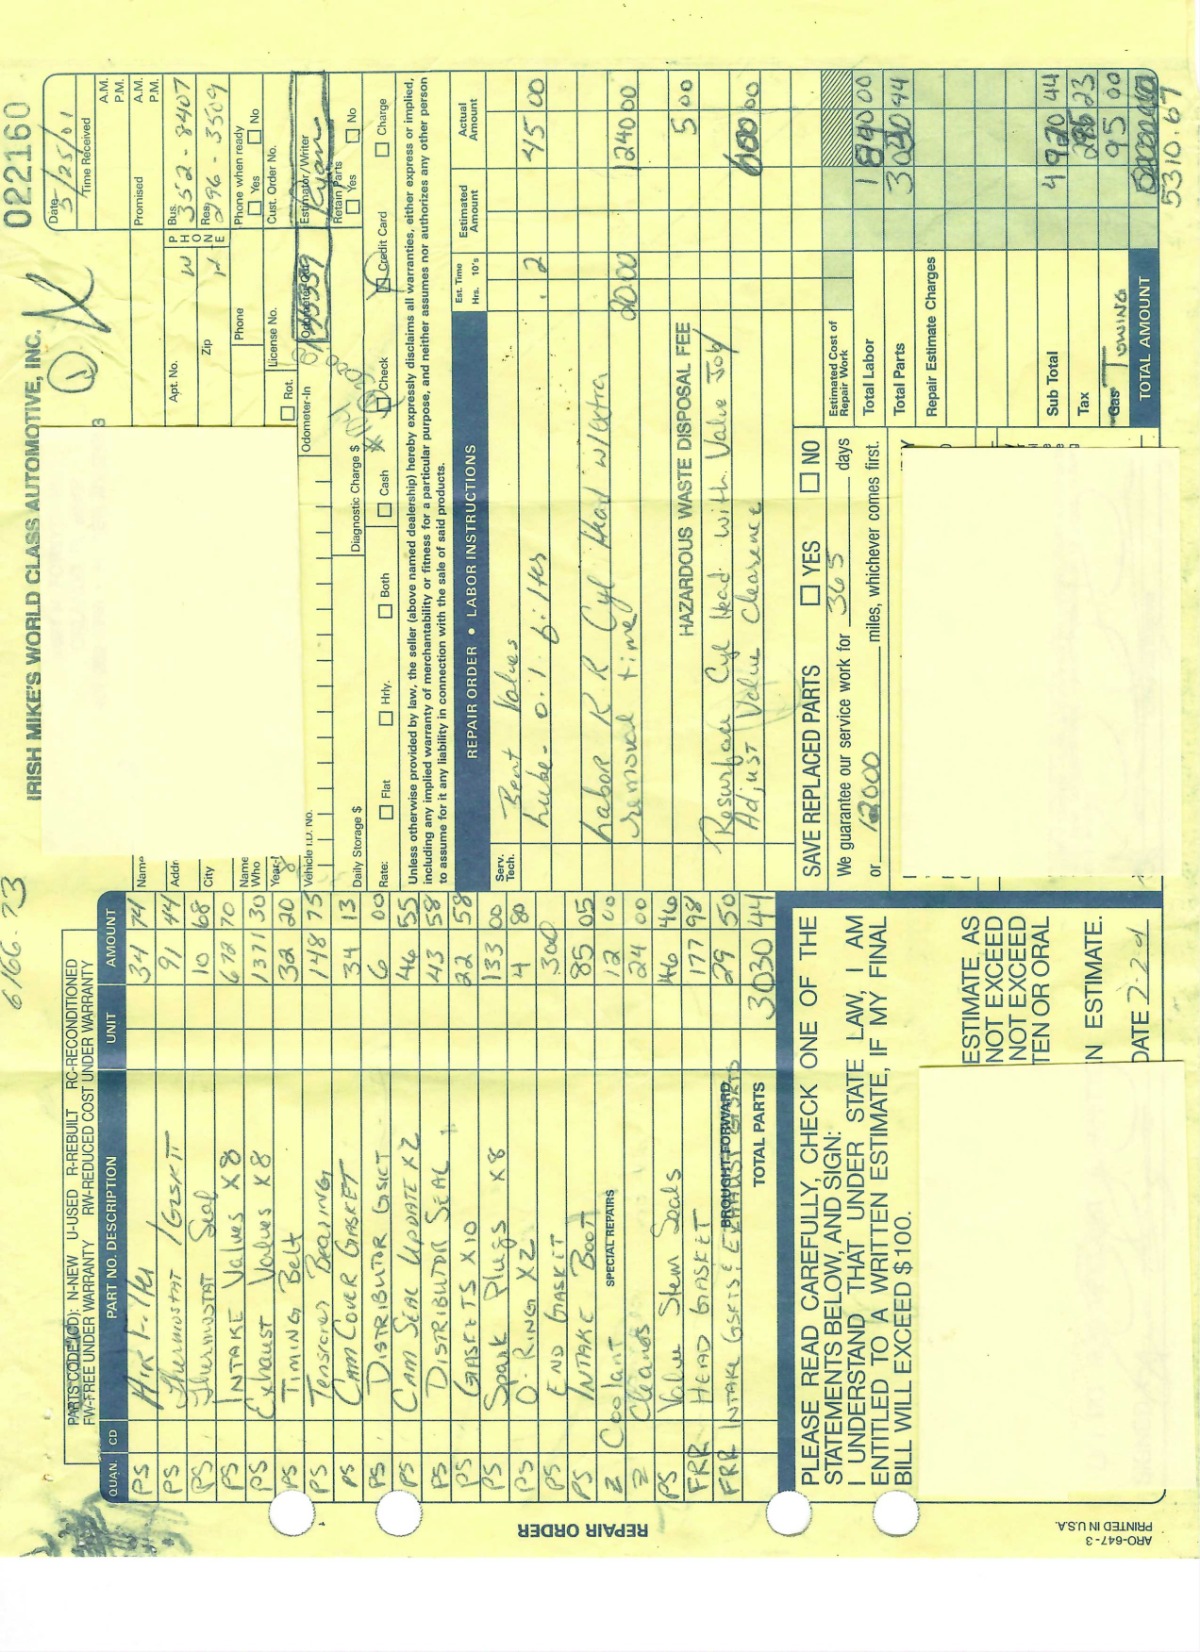 6166.73
IRISH MIKE'S WORLD CLASS AUTOMOTIVE, INC.
022160
PARTS CODE (CD): N-NEW U-USED R-REBUILT RC-RECONDITIONED
FW-FREE UNDER WARRANTY RW-REDUCED COST UNDER WARRANTY
QUAN. CD PART NO. DESCRIPTION UNIT AMOUNT
PS Air Filter 34 74
PS Thermostat / GSKTT 91 44
PS Thermostat Seal 10 68
PS INTAKE Valves X8 672 70
PS Exhaust Valves X8 1371 30
PS TIMING Belt 32 20
PS Tensioner Bearing 148 75
PS CAM COVER GASKET 34 13
PS DISTRIBUTOR GSKT 6 00
PS CAM SEAL UPDATE X2 46 55
PS DISTRIBUTOR SEAL 43 58
PS GASKETS X10 22 58
PS Spark Plugs X8 133 00
PS O-RING X2 4 80
PS END GASKET 3 00
PS INTAKE BOOT 85 05
SPECIAL REPAIRS
2 Coolant 12 00
2 Cleands 24 00
PS Valve Stem Seals 46 46
FRR HEAD GASKET 177 98
BROUGHT FORWARD
FRR INTAKE GSKTS EXHAUST GSKTS 29 50
TOTAL PARTS 3030 44
PLEASE READ CAREFULLY, CHECK ONE OF THE
STATEMENTS BELOW, AND SIGN:
I UNDERSTAND THAT UNDER STATE LAW, I AM
ENTITLED TO A WRITTEN ESTIMATE, IF MY FINAL
BILL WILL EXCEED $100.
ESTIMATE AS
NOT EXCEED
NOT EXCEED
TEN OR ORAL
N ESTIMATE.
DATE
REPAIR ORDER
ARO-647-3
PRINTED IN U.S.A.
Date 3/25/01
Time Received A.M. P.M.
Name Promised A.M. P.M.
Addr Apt. No. PHONE W Bus. 352-8407
City Zip H Res. 296-3509
Name
Who Phone Phone when ready Yes No
Year- License No. Cust. Order No.
Vehicle I.D. No. Rot. Odometer-In Estimator/Writer Ryan
Daily Storage $ Diagnostic Charge $ Retain Parts Yes No
Rate: Flat Hrly. Both Cash Check Credit Card Charge
Unless otherwise provided by law, the seller (above named dealership) hereby expressly disclaims all warranties, either express or implied,
including any implied warranty of merchantability or fitness for a particular purpose, and neither assumes nor authorizes any other person
to assume for it any liability in connection with the sale of said products.
Serv. Tech. REPAIR ORDER • LABOR INSTRUCTIONS Est. Time Hrs. 10's Estimated Amount Actual Amount
Bent Valves
Lube - oil & filter .2 45 00
Labor R R Cyl Head w/extra
removal time 20.00 1240 00
HAZARDOUS WASTE DISPOSAL FEE 5 00
Resurface Cyl Head with Valve Job
Adjust Valve Clearence 600 00
SAVE REPLACED PARTS YES NO
We guarantee our service work for 365 days
or 12000 miles, whichever comes first.
Estimated Cost of
Repair Work
Total Labor 1890 00
Total Parts 3030 44
Repair Estimate Charges
Sub Total 4920 44
Tax 295 23
Gas Towing 95 00
TOTAL AMOUNT
5310.67